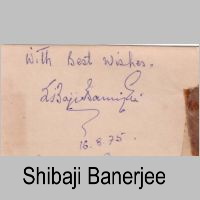 With Best Wishes.
S Baji Banerjee
16.8.75.
Shibaji Banerjee